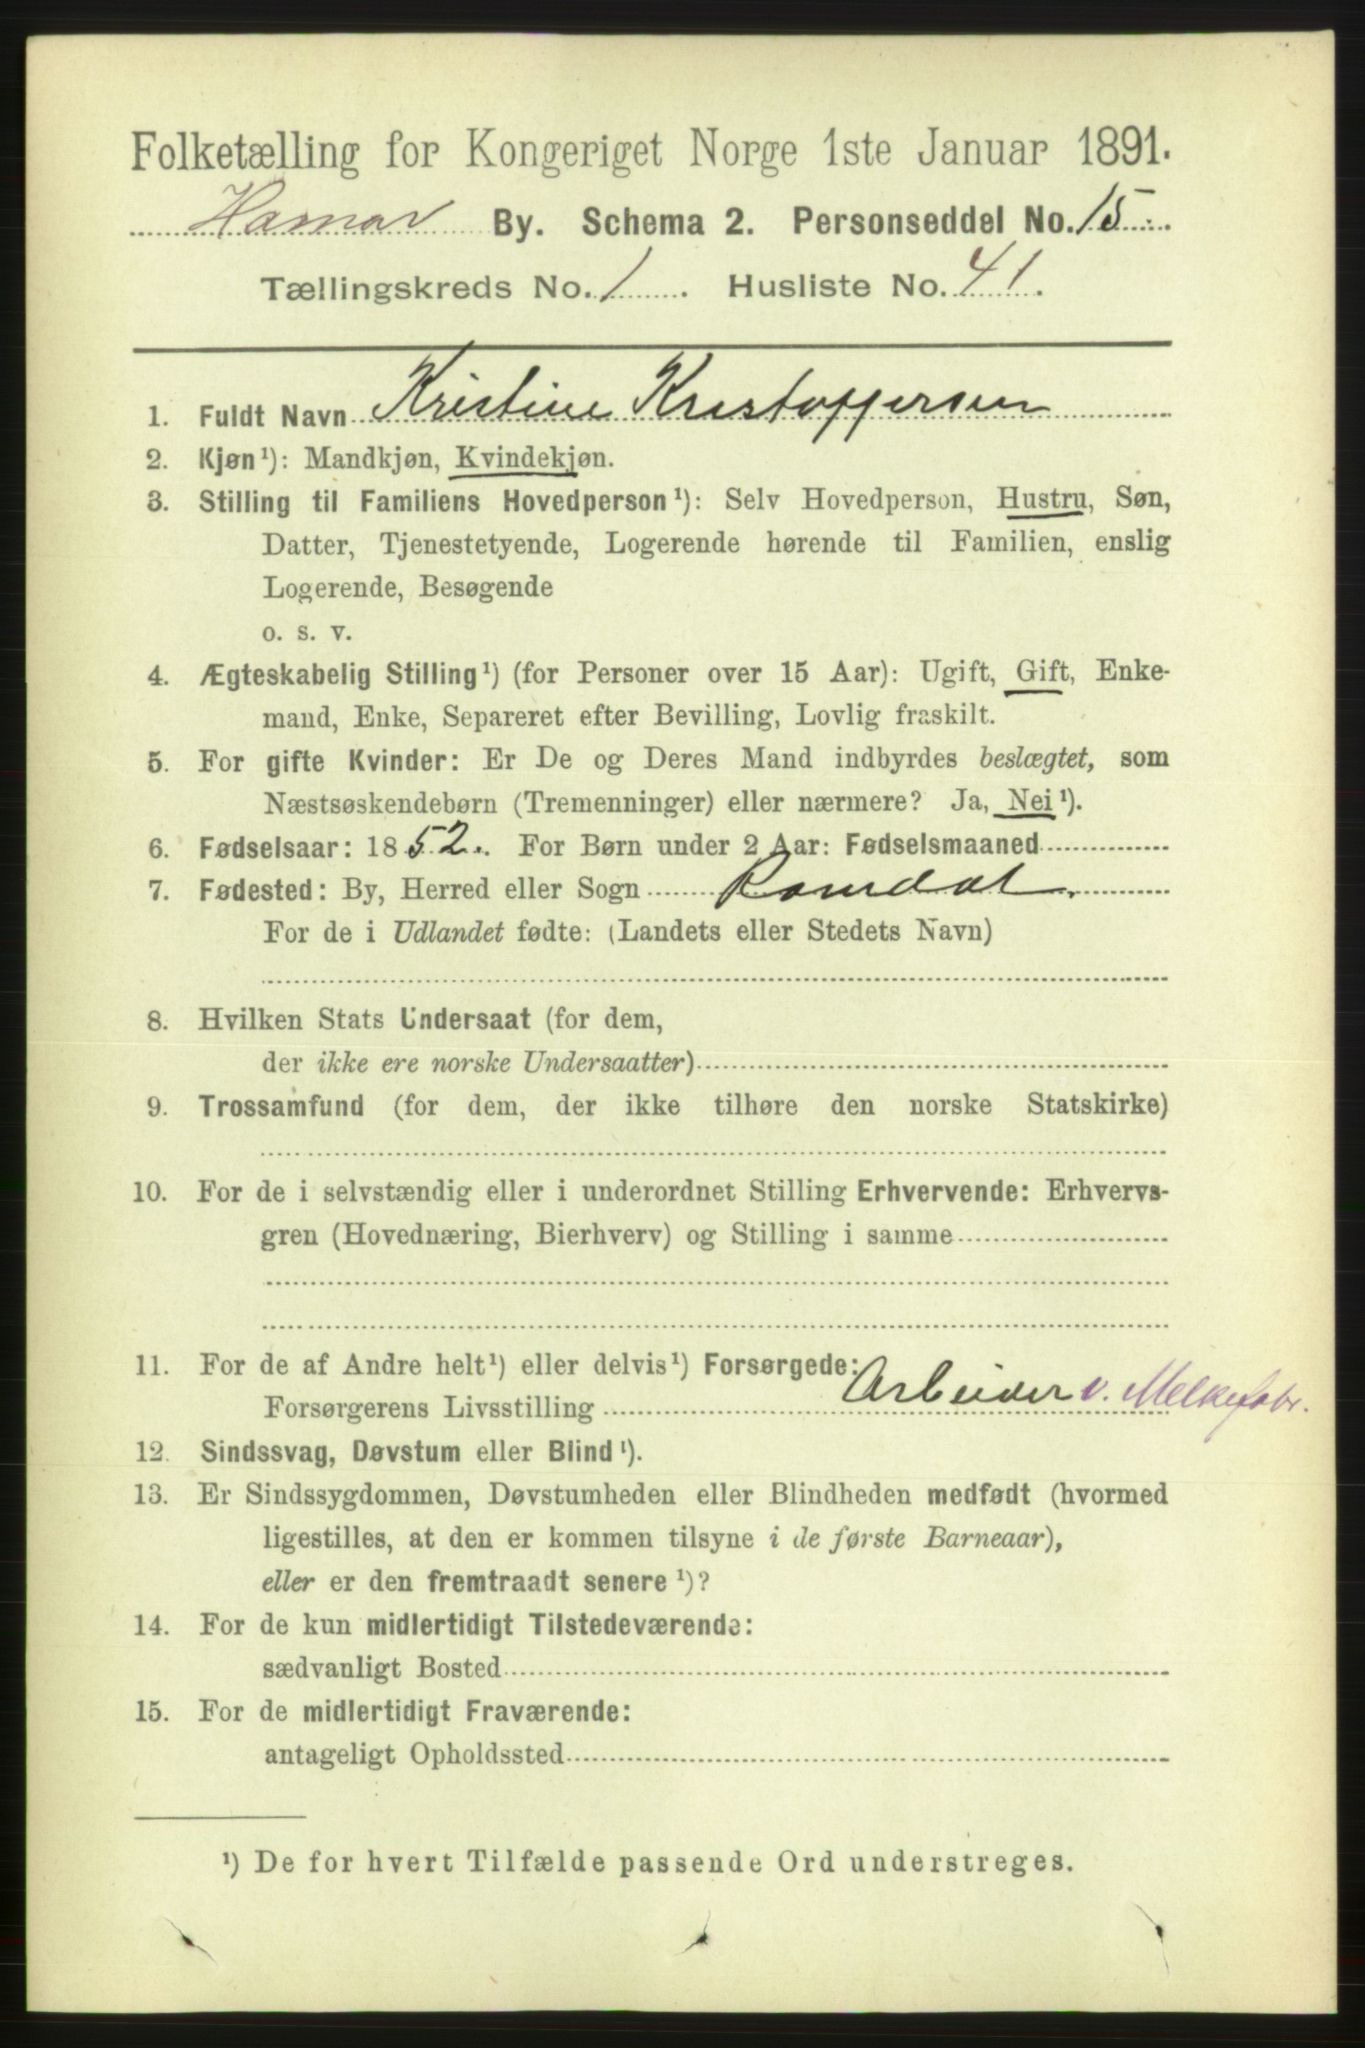 Folketælling for Kongeriget Norge 1ste Januar 1891.
Hamar By. Schema 2. Personseddel No. 15.
Tællingskreds No. 1. Husliste No. 41.
1. Fuldt Navn Kristine Kristoffersen
2. Kjøn¹): Mandkjøn, Kvindekjøn.
3. Stilling til Familiens Hovedperson¹): Selv Hovedperson, Hustru, Søn,
Datter, Tjenestetyende, Logerende hørende til Familien, enslig
Logerende, Besøgende
o. s. v.
4. Ægteskabelig Stilling¹) (for Personer over 15 Aar): Ugift, Gift, Enke-
mand, Enke, Separeret efter Bevilling, Lovlig fraskilt.
5. For gifte Kvinder: Er De og Deres Mand indbyrdes beslægtet, som
Næstsøskendebørn (Tremenninger) eller nærmere? Ja, Nei¹).
6. Fødselsaar: 1852. For Børn under 2 Aar: Fødselsmaaned
7. Fødested: By, Herred eller Sogn Romdal.
For de i Udlandet fødte: (Landets eller Stedets Navn)
8. Hvilken Stats Undersaat (for dem,
der ikke ere norske Undersaatter)
9. Trossamfund (for dem, der ikke tilhøre den norske Statskirke)
10. For de i selvstændig eller i underordnet Stilling Erhvervende: Erhvervs-
gren (Hovednæring, Bierhverv) og Stilling i samme
11. For de af Andre helt¹) eller delvis¹) Forsørgede:
Forsørgerens Livsstilling Arbeider v. Melkefabr.
12. Sindssvag, Døvstum eller Blind¹).
13. Er Sindssygdommen, Døvstumheden eller Blindheden medfødt (hvormed
ligestilles, at den er kommen tilsyne i de første Barneaar),
eller er den fremtraadt senere¹)?
14. For de kun midlertidigt Tilstedeværende:
sædvanligt Bosted
15. For de midlertidigt Fraværende:
antageligt Opholdssted
¹) De for hvert Tilfælde passende Ord understreges.